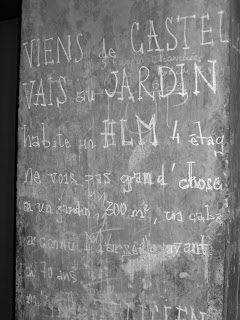 VIENS de CASTEL
VAIS au JARDIN
habite un HLM 4 étag
ne vois pas grand'chose
ai un jardin, 200 m², un caba
pas connu Marseille avant
ai 70 ans